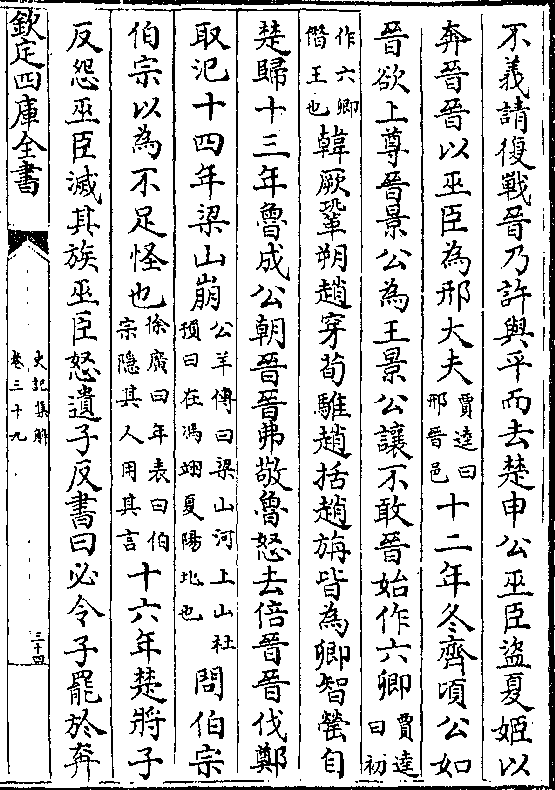 不義請復戰晉乃許與平而去楚申公巫臣盜夏姬以
奔晉晉以巫臣為邢大夫賈逵曰邢晉邑十二年冬齊頃公如
晉欲上尊晉景公為王景公讓不敢晉始作六卿賈逵曰初
作六卿僭王也韓厥鞏朔趙穿荀騅趙括趙旃皆為卿智罃自
楚歸十三年魯成公朝晉晉弗敬魯怒去倍晉晉伐鄭
取氾十四年梁山崩公羊傳曰梁山河上山杜預曰在馮翊夏陽北也問伯宗
伯宗以為不足怪也徐廣曰年表曰伯宗隱其人用其言十六年楚將子
反怨巫臣滅其族巫臣怒遺子反書曰必令子罷於奔
欽定四庫全書
史記集解
卷三十九
三十四